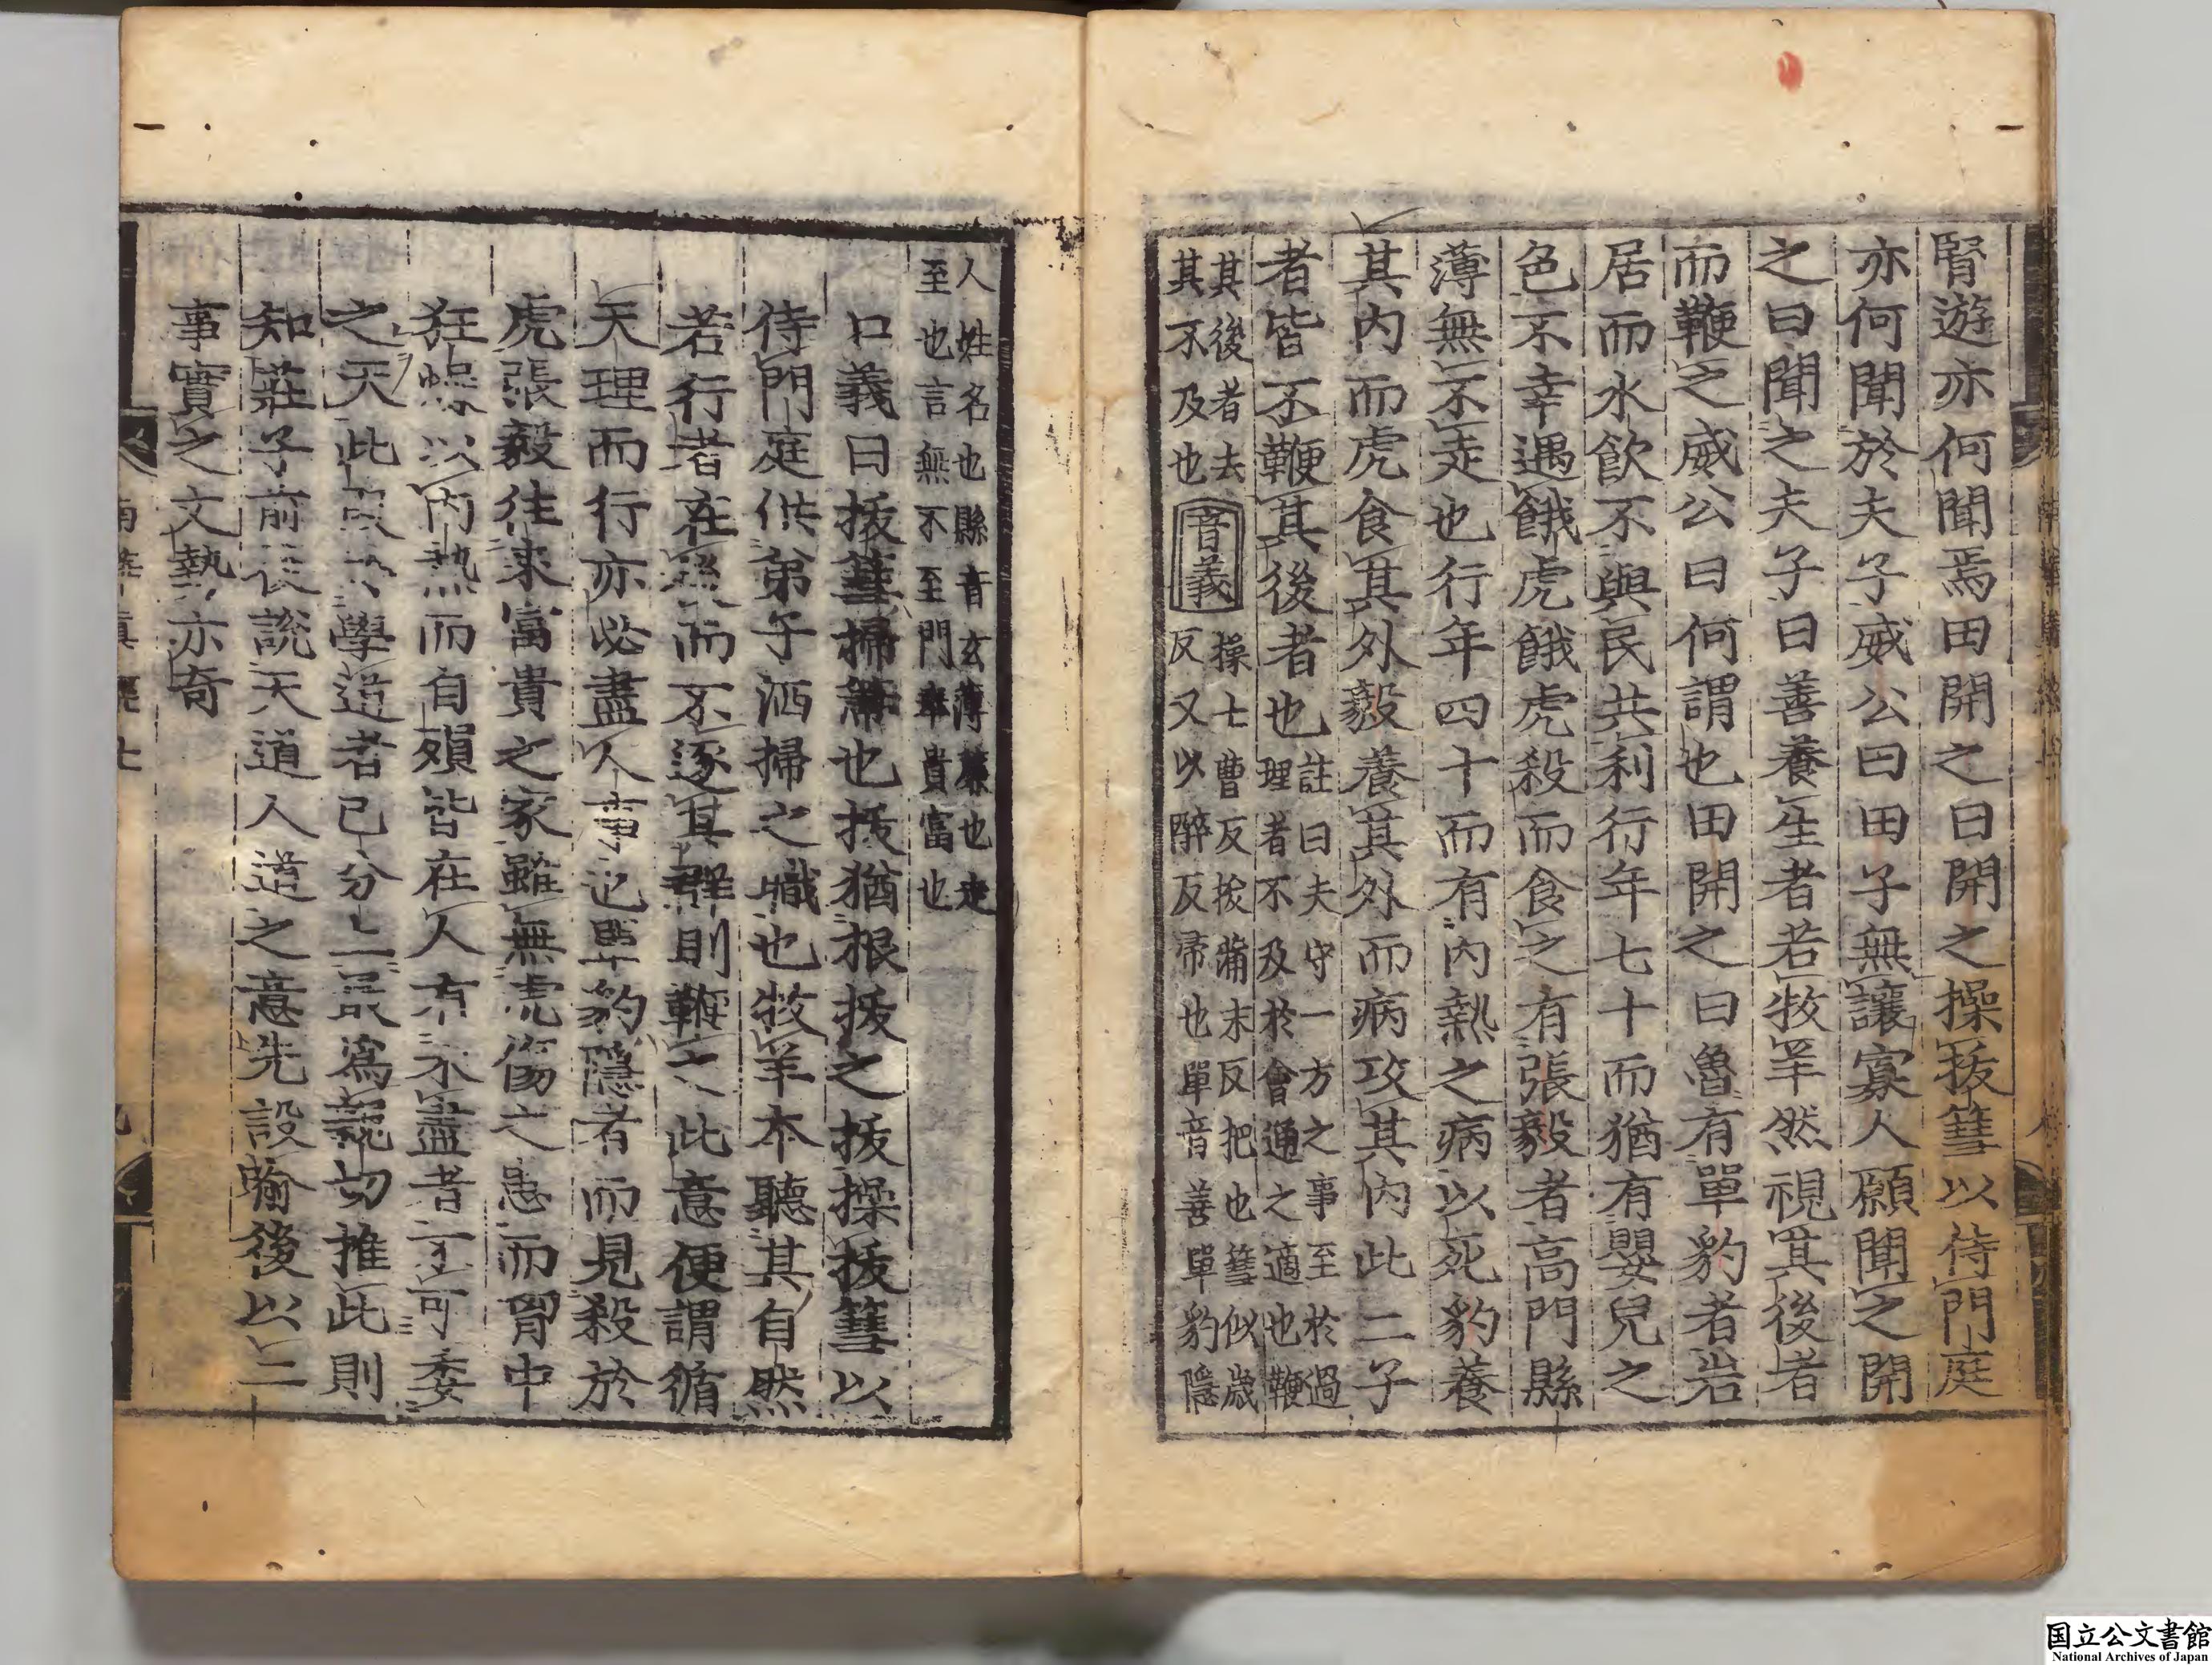 腎遊亦何聞焉田開之曰開之操拔篲以侍門庭
亦何聞於夫子威公曰田子無讓寡人願聞之開
之曰聞之夫子曰善養生者若牧羊然視其後者
而鞭之威公曰何謂也田開之曰魯有單豹者岩
居而水飲不與民共利行年七十而猶有嬰兒之
色不幸遇餓虎餓虎殺而食之有張毅者高門縣
薄無不走也行年四十而有內熱之病以死豹養
其內而虎食其外毅養其外而病攻其內此二子
者皆不鞭其後者也
註曰夫守一方之事至於過
理者不及於會通之適也鞭
其後者去
其不及也
音義
操七曹反拔蒲末反把也篲似歲
反又以醉反帚也單音善單豹隱
人姓名也縣音玄薄簾也走
至也言無不至門奉貴富也
口義曰拔篲掃箒也拔猶根拔之拔操拔篲以
侍門庭供弟子洒掃之職也牧羊本聽其自然
若行者在無而不逐其群則鞭之此意便謂循
天理而行亦必盡人事也單豹隱者而見殺於
虎張毅往來富貴之家雖無虎傷之患而胷中
狂以內熱而自殞皆在人有未盡者不可委
之天此學道者已分上最為親切推此則
知莊子前後說天道人道之意先設喻後以二
事實之文勢亦奇